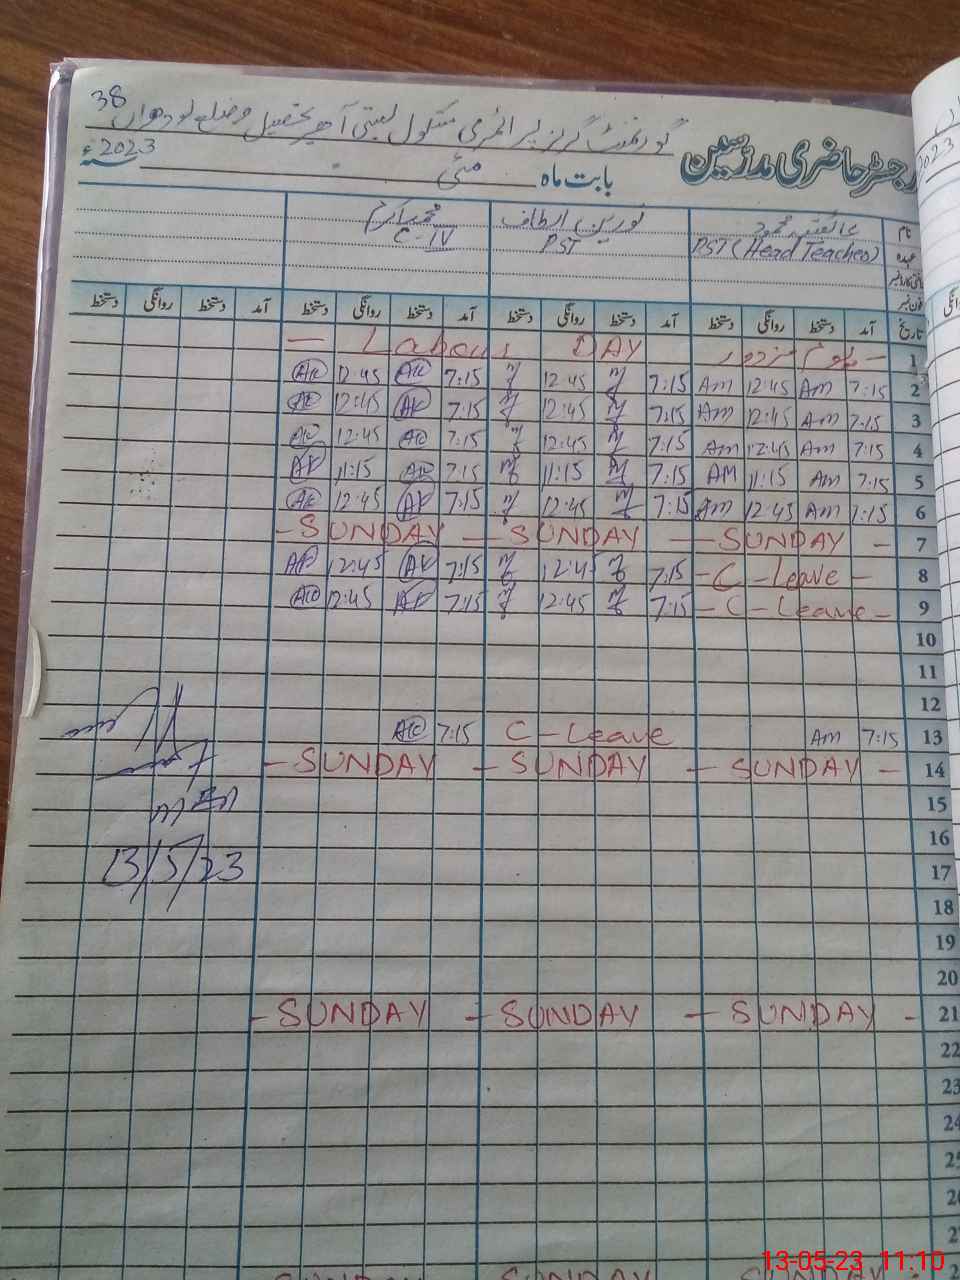 38
گورنمنٹ گرلز پرائمری سکول بستی آھیر تحصیل و ضلع لودھراں
رجسٹر حاضری مدرسین
بابت ماہ مئی 2023ء
نام عائشہ محمود نورین الطاف محمد اکرم
عہدہ PST (Head Teacher) PST C-IV
فون نمبر
تاریخ آمد دستخط روانگی دستخط آمد دستخط روانگی دستخط آمد دستخط روانگی دستخط آمد دستخط روانگی دستخط
1 - یوم مزدور Labour DAY -
2 7:15 Am 12:45 Am 7:15 12:45 7:15 AK 12:45 AK
3 7:15 Am 12:45 Am 7:15 12:45 7:15 AK 12:45 AK
4 7:15 Am 12:45 Am 7:15 12:45 7:15 AK 12:45 AK
5 7:15 Am 11:15 AM 7:15 11:15 7:15 AK 11:15 AK
6 7:15 Am 12:45 Am 7:15 12:45 7:15 AK 12:45 AK
7 - SUNDAY - SUNDAY - SUNDAY -
8 - C - Leave - 7:15 12:45 7:15 AK 12:45 AK
9 - C - Leave - 7:15 12:45 7:15 AK 12:45 AK
10
11
12
13 7:15 Am C - Leave 7:15 AK
14 - SUNDAY - SUNDAY - SUNDAY -
15
16
17
13/5/23
18
19
20
21 - SUNDAY - SUNDAY - SUNDAY -
22
23
24
25
13-05-23 11:10